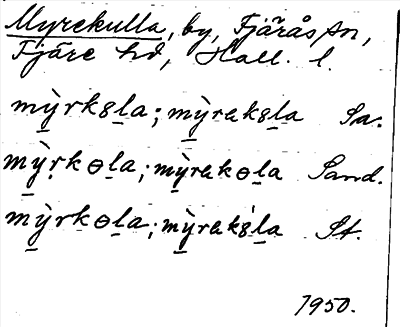 Myrekulla, by, Fjärås sn,
Fjäre hd, Hall. l.
m̲ỳrk8l̲a; m̲ỳrak8l̲a Sa.
m̲ỳr̲kɵl̲a; m̲ỳrakɵl̲a Sand.
m̲ỳrkɵl̲a; m̲ỳrak8l̲a St.
1950.